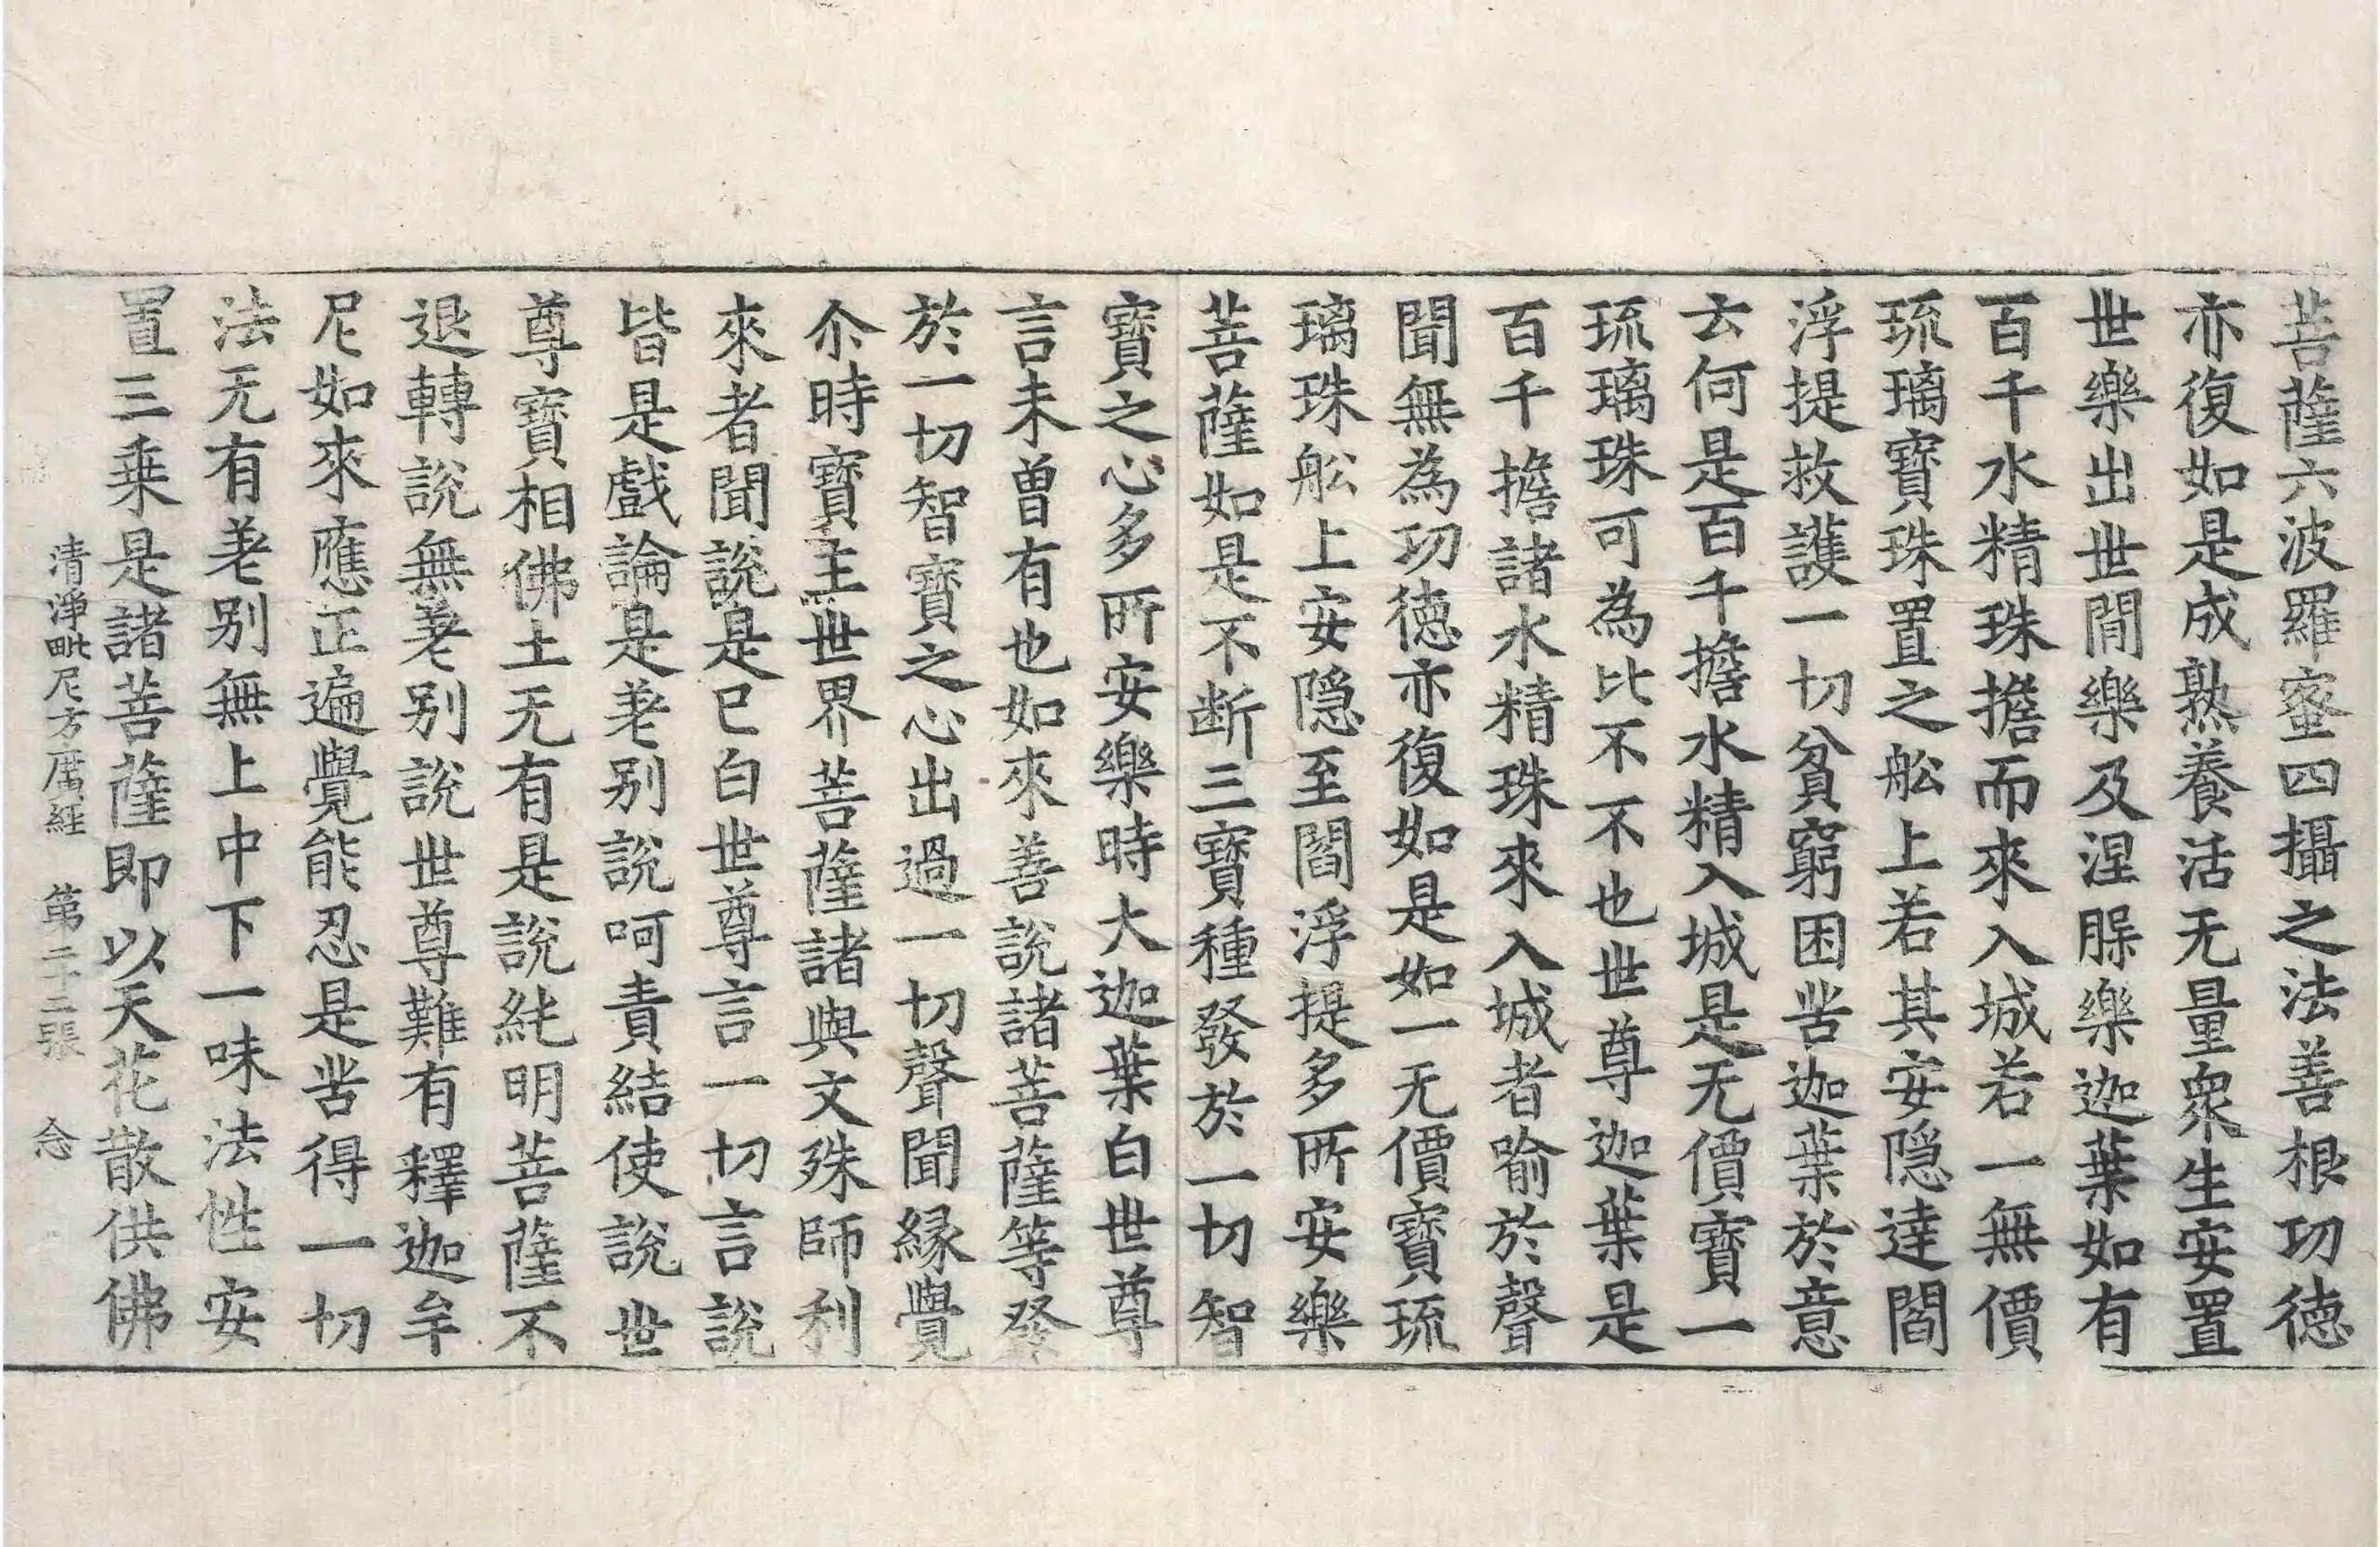 菩薩六波羅蜜四攝之法善根功德
亦復如是成熟養活无量衆生安置
世樂出世閒樂及涅槃樂迦葉如有
百千水精珠擔而來入城若一無價
琉璃寶珠置之舩上若其安隱達閻
浮提救護一切貧窮困苦迦葉於意
云何是百千擔水精入城是无價寶一
琉璃珠可為比不不也世尊迦葉是
百千擔諸水精珠來入城者喻於聲
聞無為功德亦復如是如一无價寶琉
璃珠舩上安隱至閻浮提多所安樂
菩薩如是不断三寶種發於一切智
寶之心多所安樂時大迦葉白世尊
言未曾有也如來善說諸菩薩等發
於一切智寶之心出過一切聲聞緣覺
尒時寶主世界菩薩諸與文殊師利
來者聞說是已白世尊言一切言說
皆是戲論是差别說呵責結使說世
尊寶相佛土无有是說純明菩薩不
退轉說無差别說世尊難有釋迦牟
尼如來應正遍覺能忍是苦得一切
法无有差别無上中下一味法性安
置三乗是諸菩薩即以天花散供佛
清淨毗尼方廣經 第二十二張 念